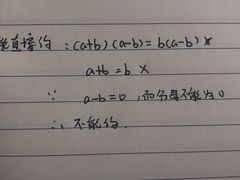 直接约：(a+b)(a-b)=b(a-b)
a+b=b ×
∵ a-b=0，而分母不能为0
∴ 不能约.